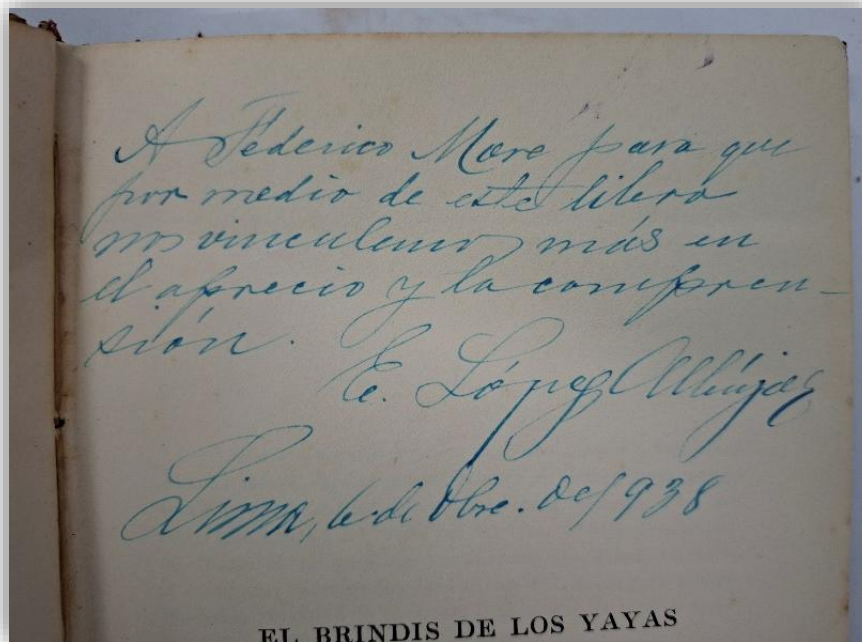 A Federico More para que
por medio de este libro
nos vinculemos más en
el aprecio y la compren-
sión.
E. López Albújar
Lima, 6 de bre. de 1938
EL BRINDIS DE LOS YAYAS